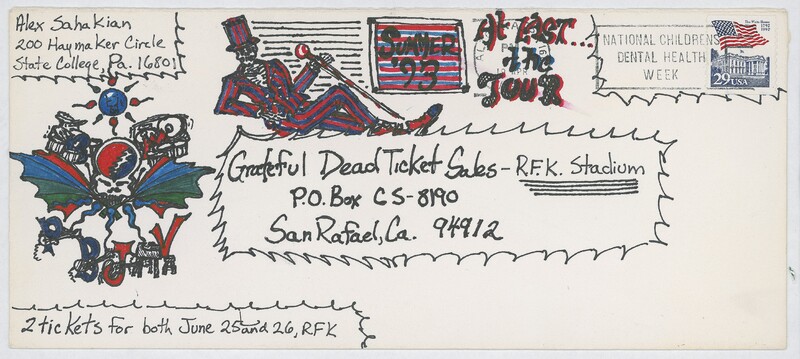 Alex Sahakian
200 Haymaker Circle
State College, Pa. 16801
SUMMER
'93
At Last...
the
TOUR
NATIONAL CHILDRENS
DENTAL HEALTH
WEEK
The White House
1792 1992
29 USA
Grateful Dead Ticket Sales - R.F.K. Stadium
P.O. Box CS-8190
San Rafael, Ca. 94912
P B J V
2 tickets for both June 25 and 26, RFK